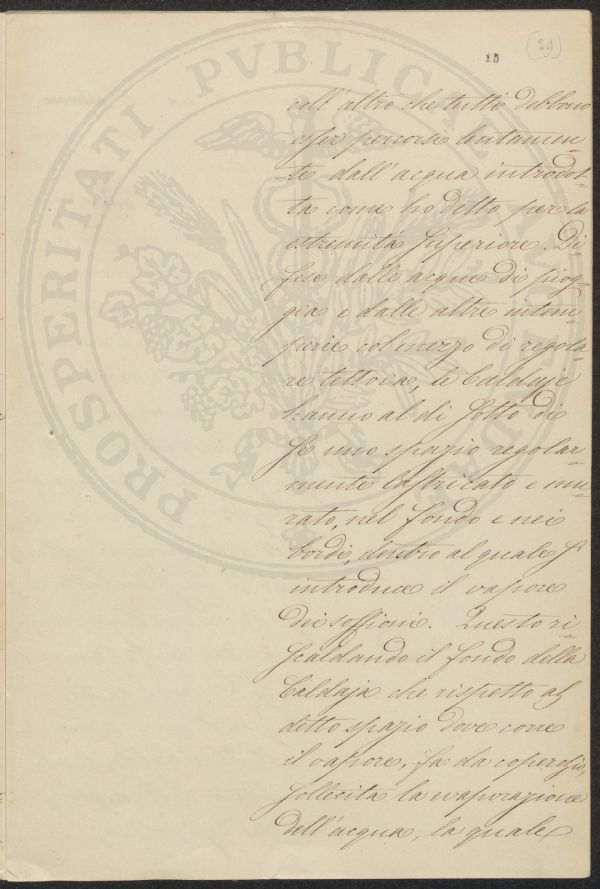 15
(29)
PROSPERITATI PVBLICAE
coll' altro che tutti debbono
esser percorsi lentamen-
te dall' acqua introdot-
ta come ho detto per la
estremità superiore. Di-
fese dalle acque di piog-
gia e dalle altre intem-
perie col mezzo di regola-
re tettoia, le Caldaje
hanno al di sotto di
se uno spazio regolar-
mente lastricato e mu-
rato, nel fondo e nei
bordi, dentro al quale s'
introduce il vapore
dei soffioni. Questo ri-
scaldando il fondo della
Caldaja che rispetto al
detto spazio dove corre
il vapore, fa da coperchio,
sollecita la evaporazione
dell'acqua, la quale